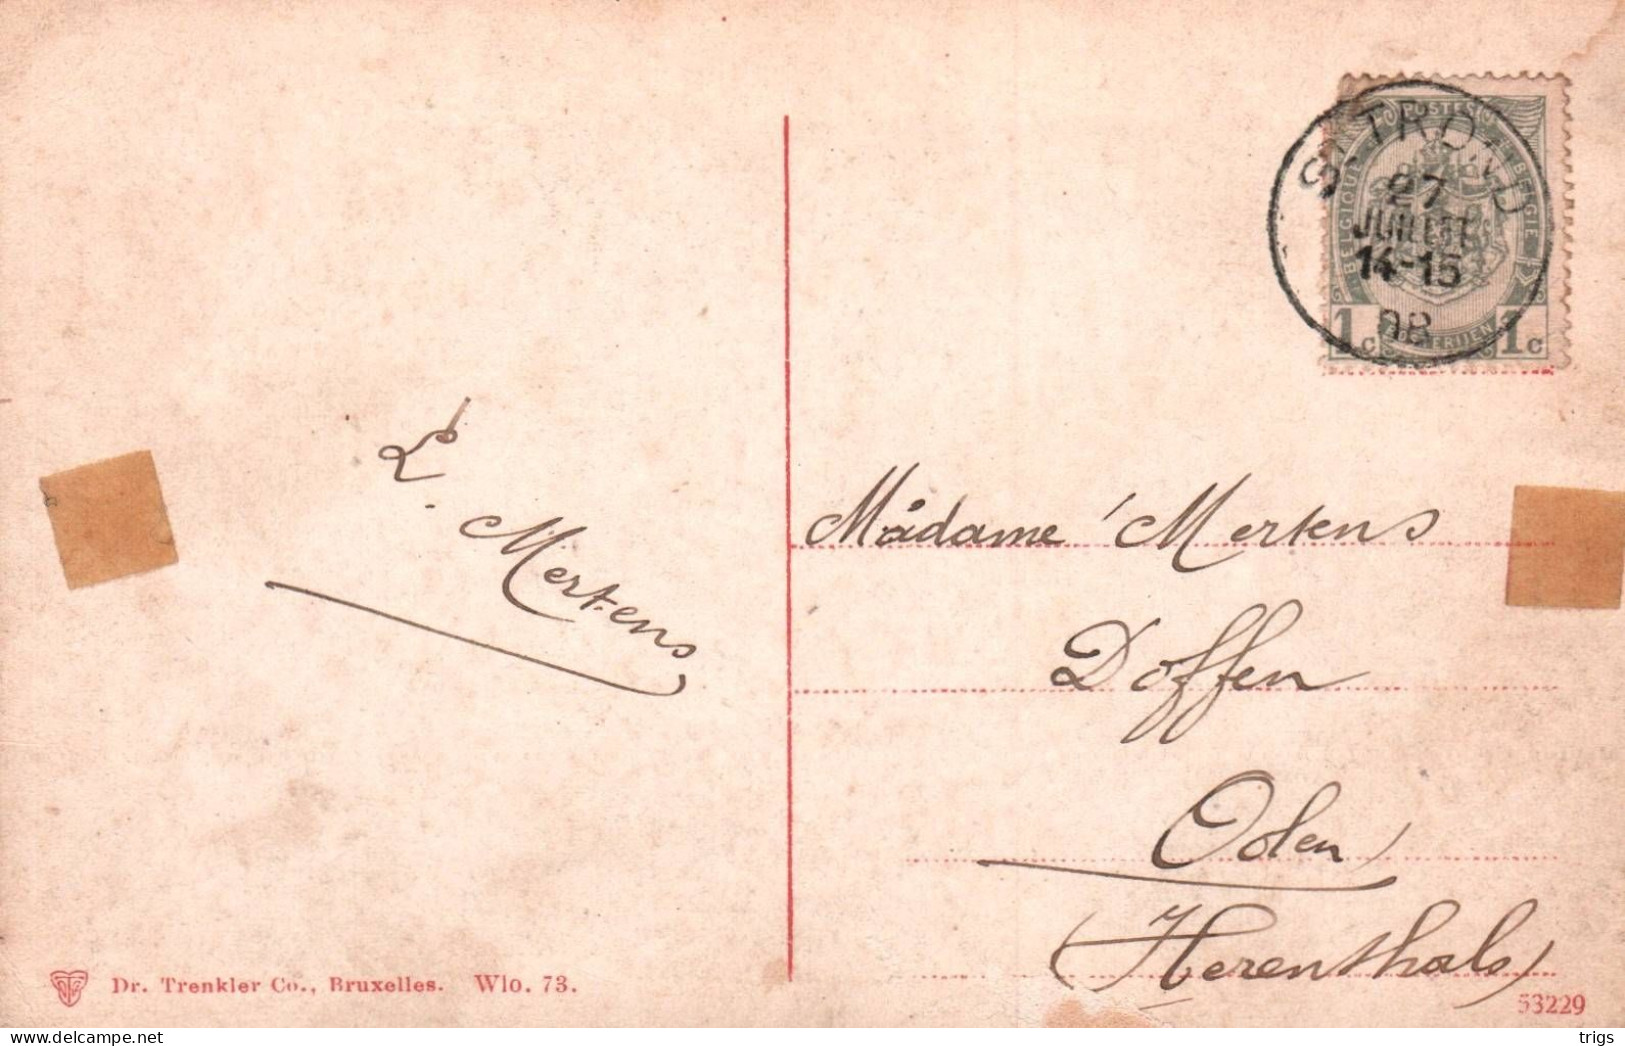 ST-TROND
27
JUILLET
14-15
08
POSTES
BELGIQUE
BELGIE
1c
1c
L. Mertens
Madame Mertens
Doffen
Oolen
(Herenthals)
Dr. Trenkler Co., Bruxelles. Wlo. 73.
53229
© delcampe.net
trigs